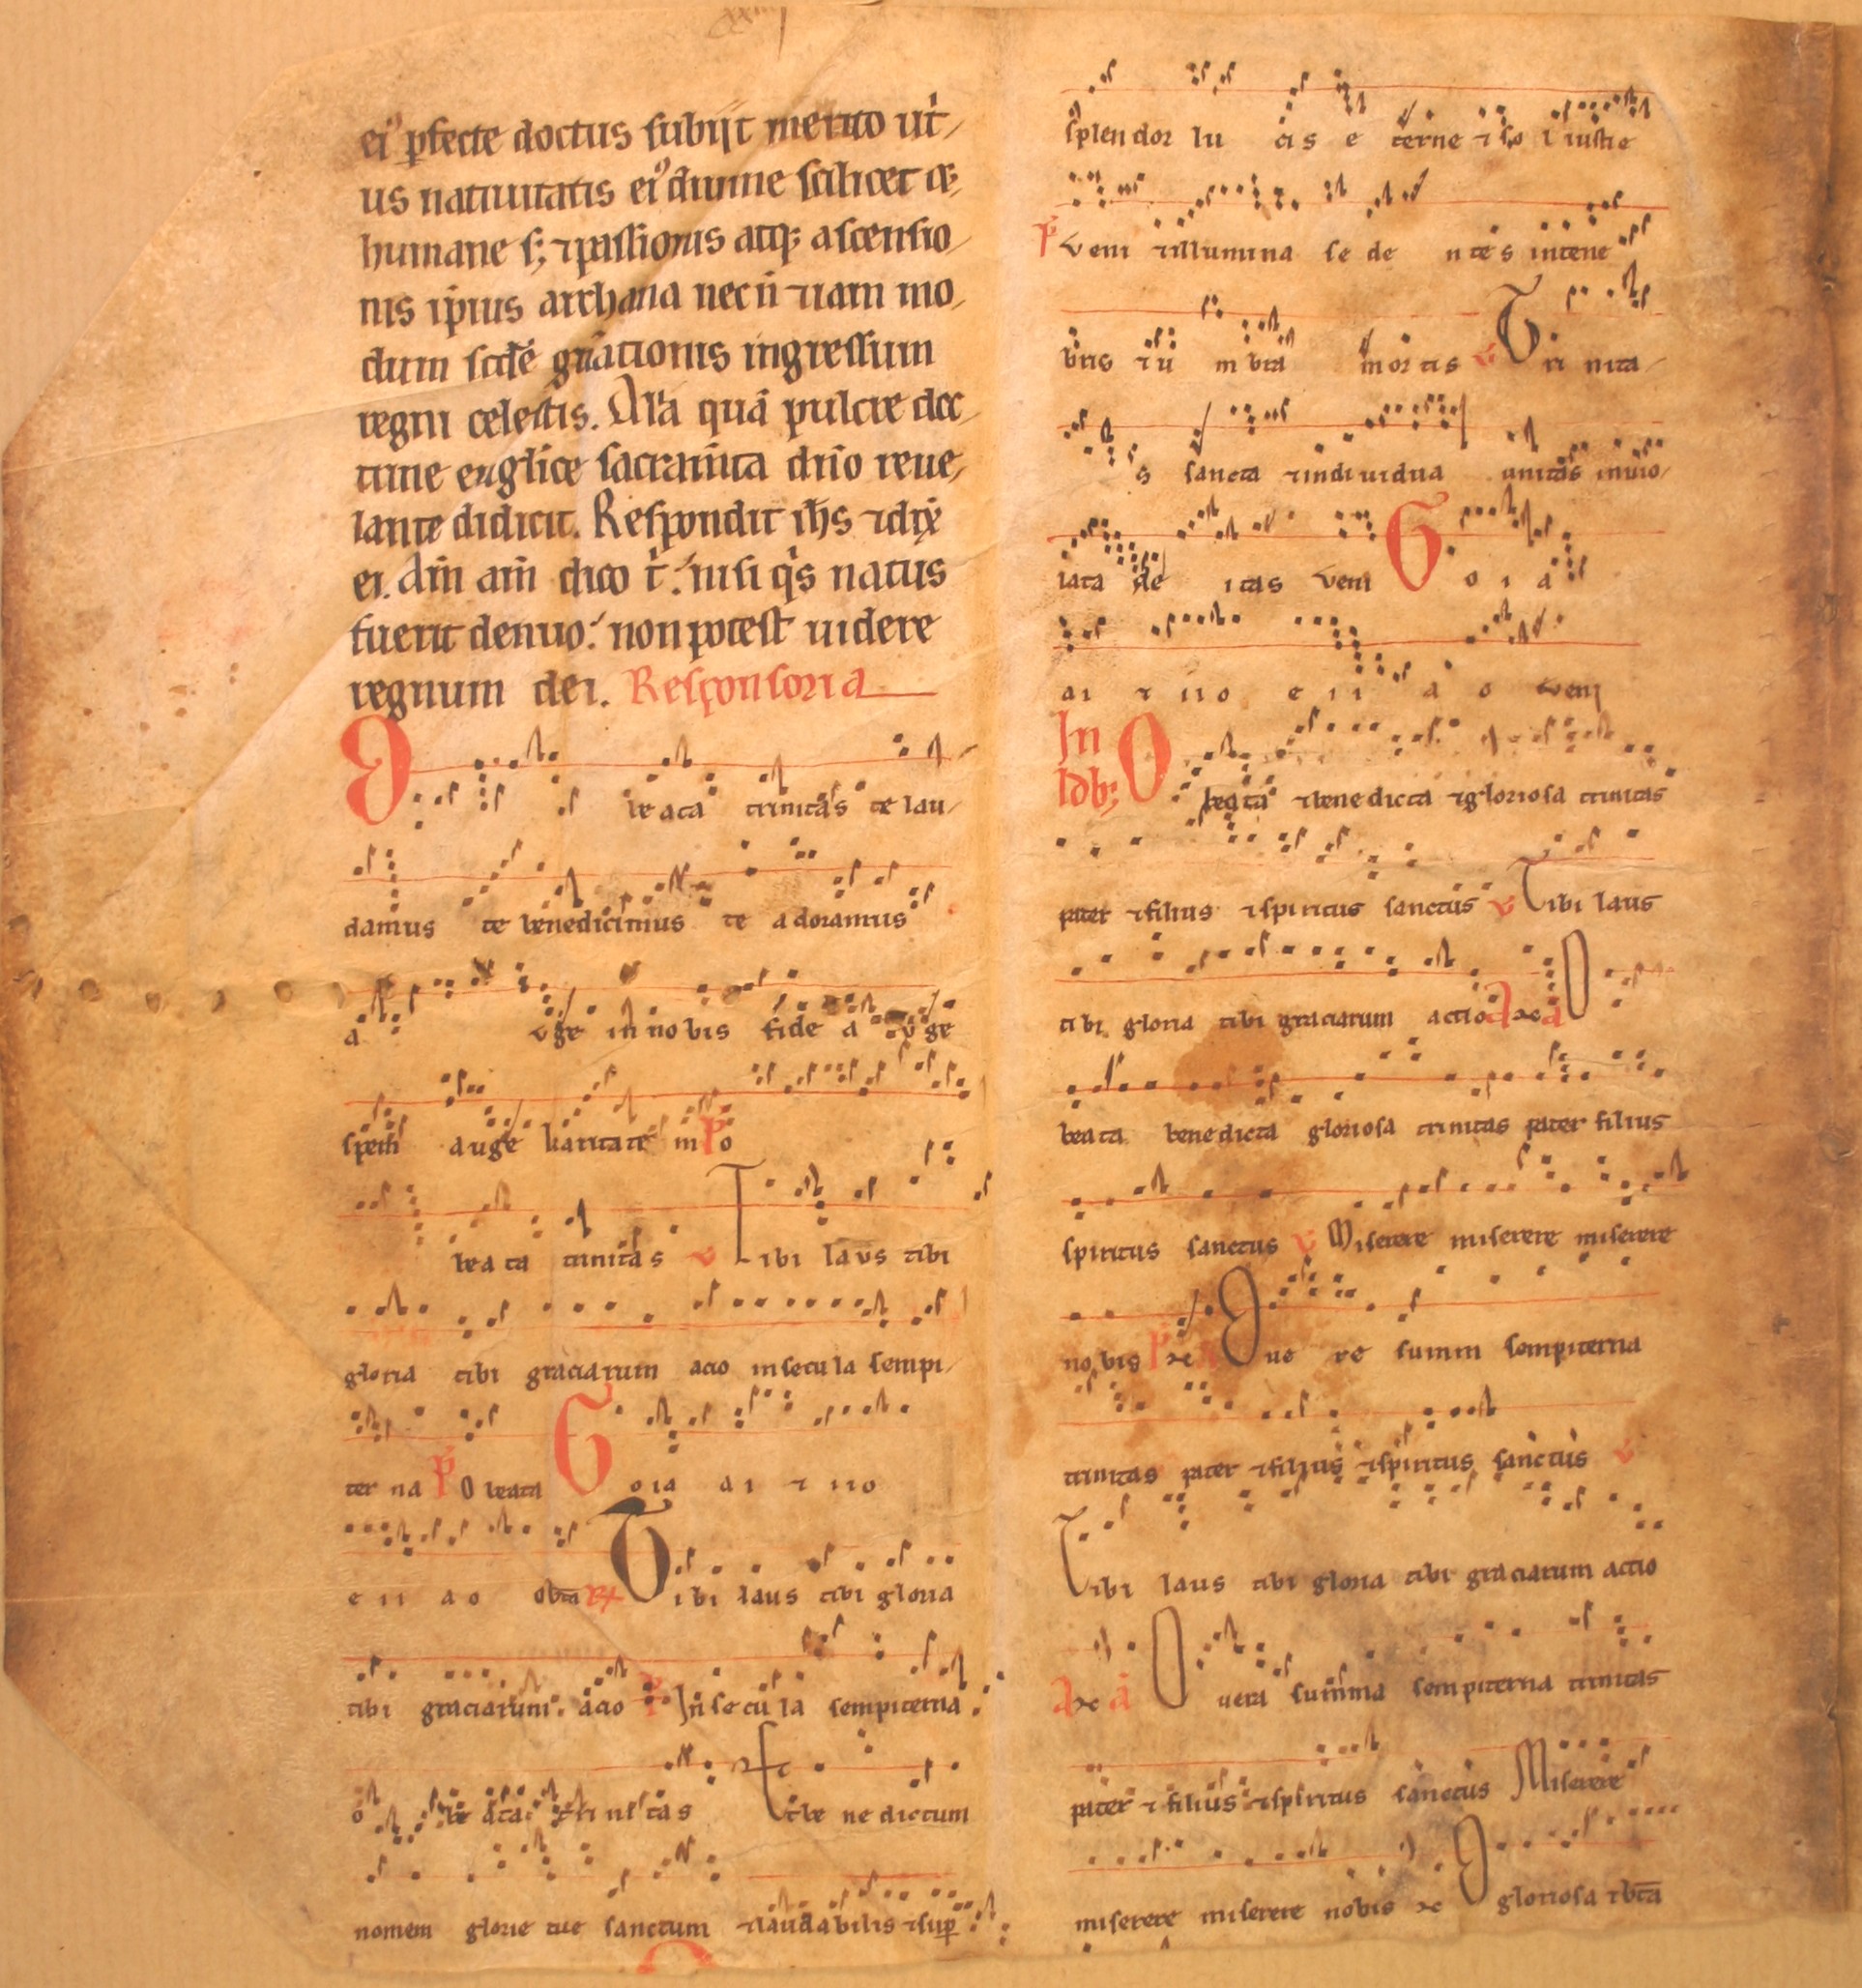 xxiiij
ei᷒ ꝑfecte doctus subijt merito ut/
us natiuitatis ei᷒ diuine scilicet atq;
humane s; ⁊ passionis atq; ascensio/
nis ip̄ius archana necn̄ ⁊ uiam mo/
dum scd̄e gn̄ationis ingressum
regni celestis. Alia quā pulcre doc/
trine euglīce sacram̄ta dn̄o reue/
lante didicit. Respondit ih̄s ⁊ dix̄
ei. Am̄ am̄ dico t̄. nisi q̇s natus
fuerit denuo. non potest uidere
regnum dei. Responsoria
O beata trinitas te lau/
damus te benedicimus te adoramus
a vge in nobis fide a vge
spem auge karitatē in P̄ o
beata trinitas v Tibi laus tibi
gloria tibi graciarum acio in secula sempi/
terna P̄ O beata Gloria ai ⁊ iio
e ii a o obta Tibi laus tibi gloria
tibi graciarum acio P̄ In secula sempiterna
o beata trinitas Et benedictum
nomem glorie tue sanctum ⁊ laudabilis ⁊ suꝑ
splendor lucis eterne ⁊ sol iustie
P̄ veni ⁊ illumina sedentes in tene
bris ⁊ ū mbra mortis v Trinita/
s sancta ⁊ indiuidua unitas inuio/
lata deitas veni G o i a
ai ⁊ iio e ii a o veni
In ldb; O beata ⁊ benedicta ⁊ gloriosa trinitas
pater ⁊ filius ⁊ spiritus sanctus v Tibi laus
tibi gloria tibi graciarum actio A ⁊c a O
beata benedicta gloriosa trinitas pater filius
spiritus sanctus v Miserere miserere miserere
nobis P̄ ⁊c O uere summ sempiterna
trinitas pater ⁊ filius ⁊ spiritus sanctus v
Tibi laus tibi gloria tibi graciarum actio
A ⁊c ā O uera summa sempiterna trinitas
pater ⁊ filius ⁊ spiritus sanctus Miserere
miserere miserere nobis ⁊c O gloriosa ⁊ bt̄a